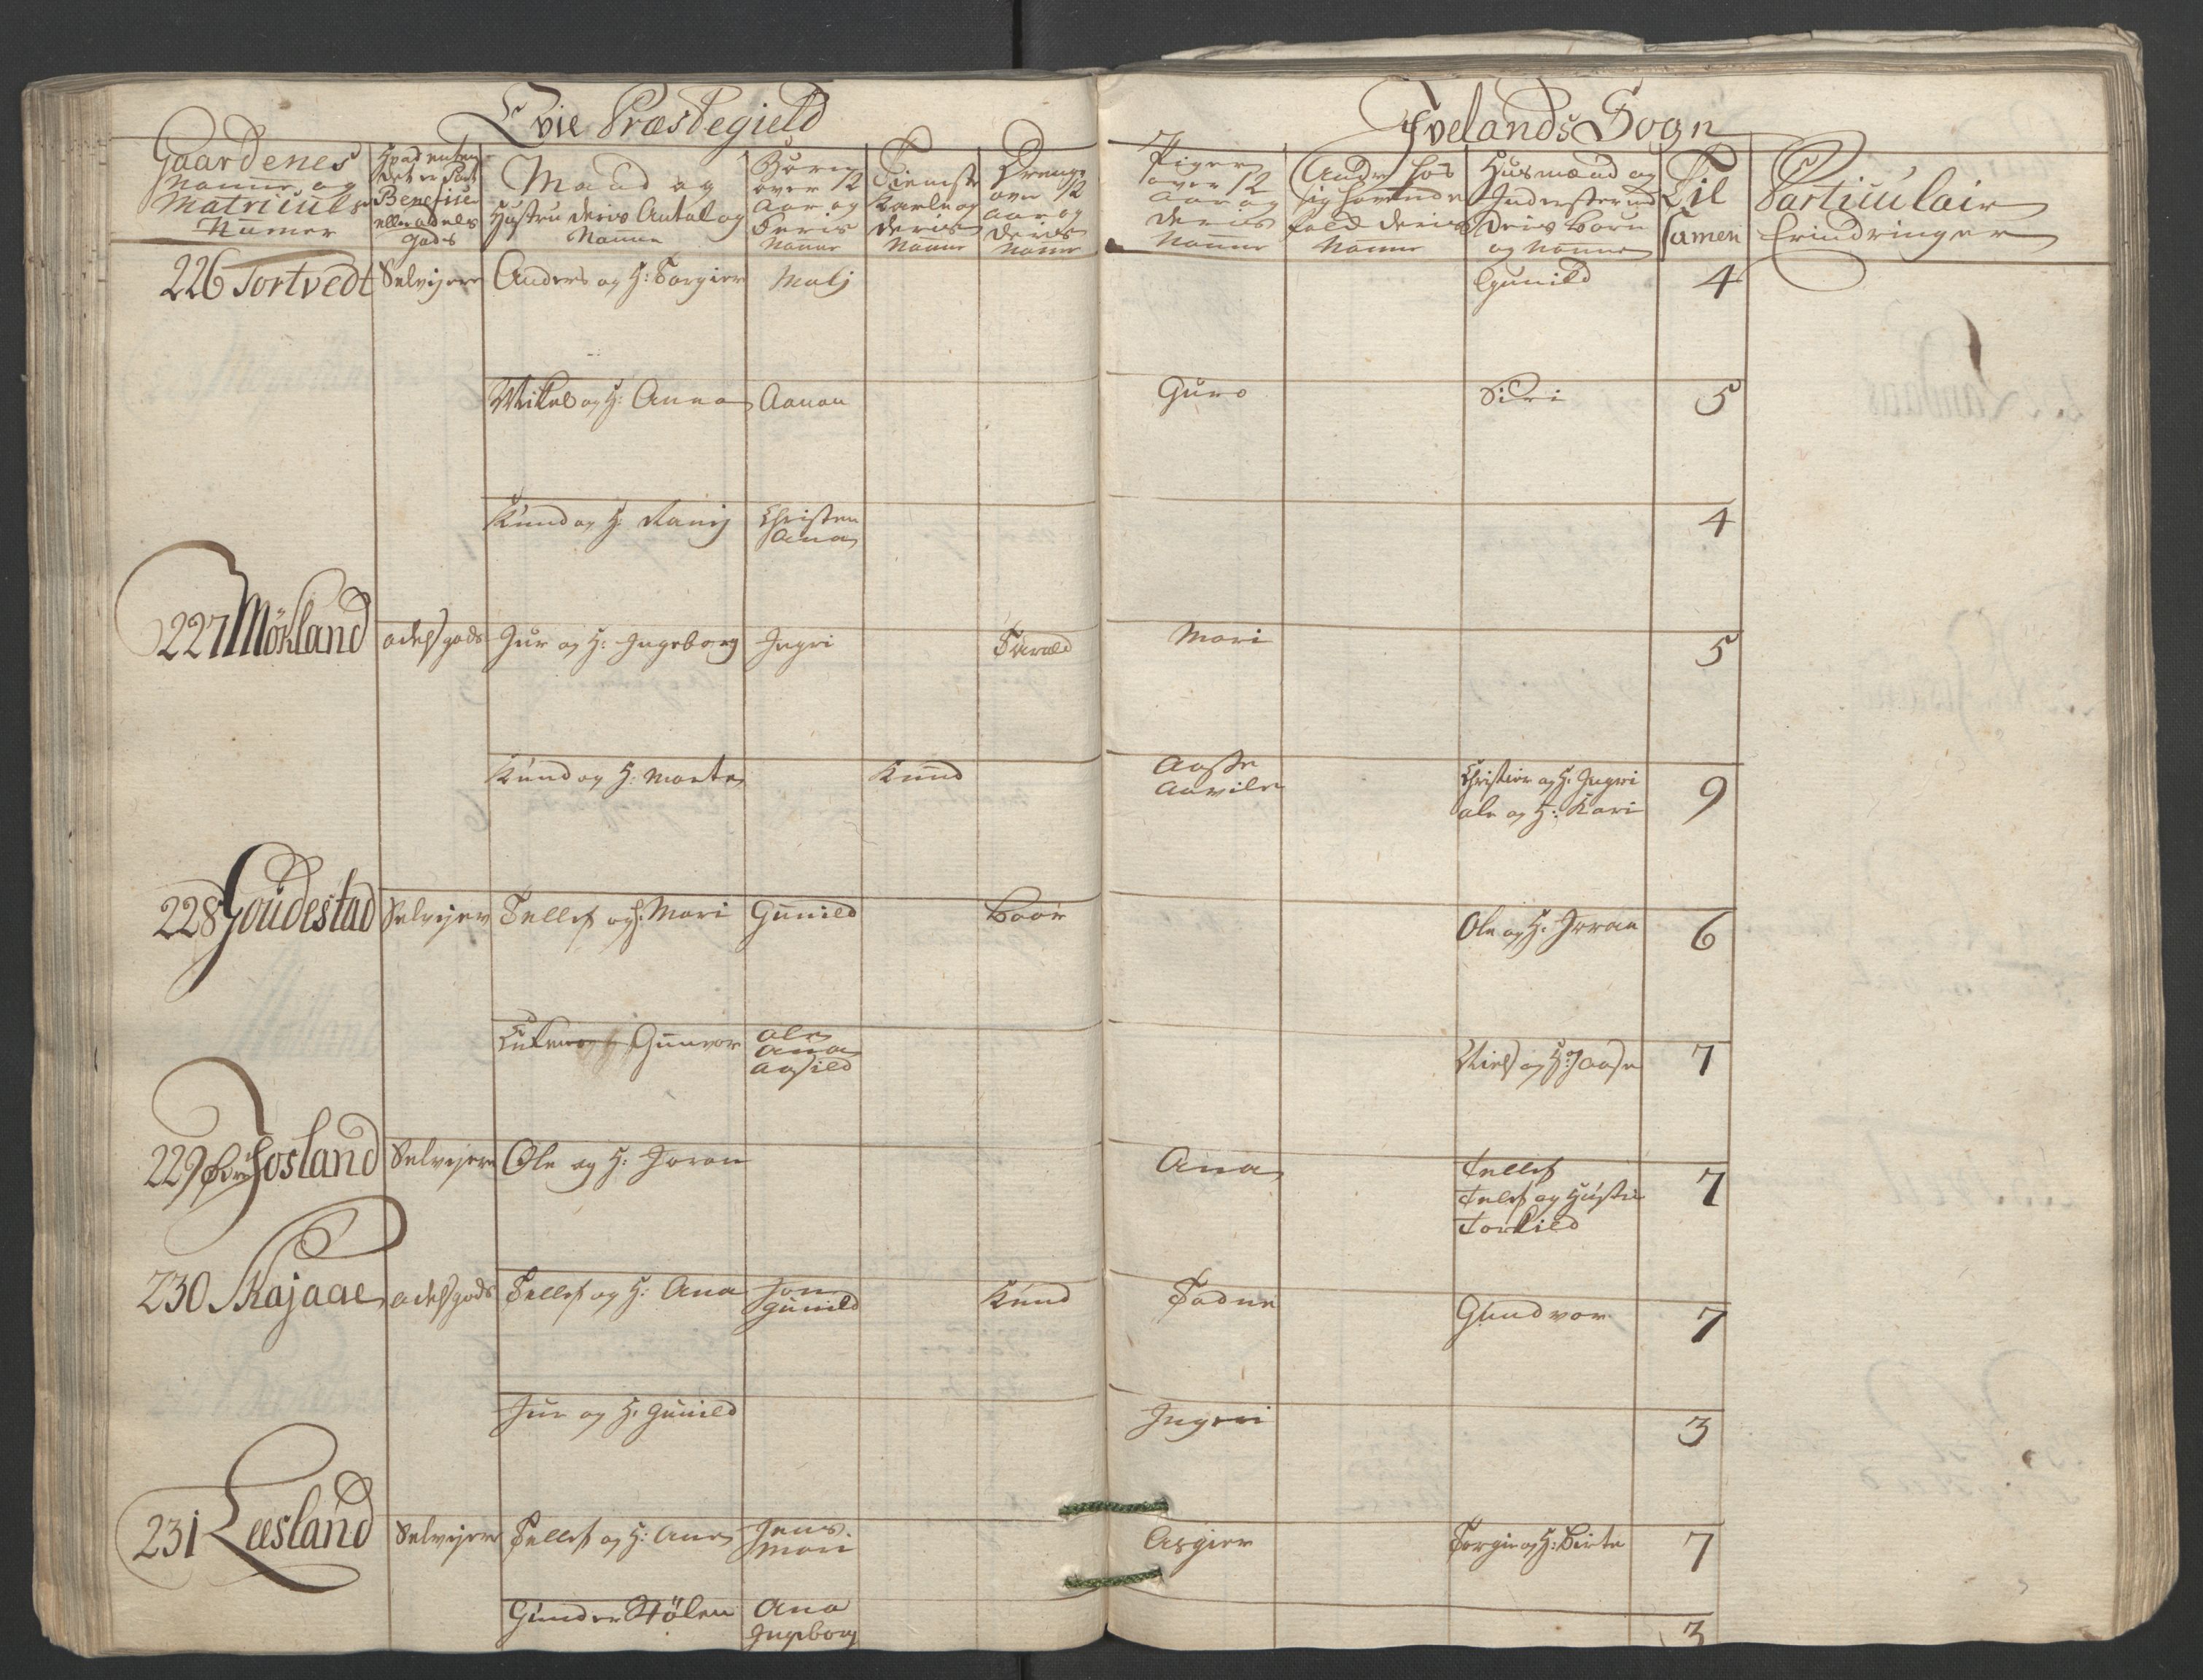 Evie Præstegield
Ivelands Sogn
Gaardenes Nafne og Matriculs Numer
Hvad enten det er Benefise eller adels gods
Mand og Hustru deris Antal og Nafne
Børn over 12 Aar og deris Nafne
Tieniste Karle og deris Nafne
Drenge over 12 Aar og deris Nafne
Piger over 12 Aar og deris Nafne
Andre hos sig havende folk deris Nafne
Husmænd og Inderster med deris børn og Nafne
Til samen
Particulair Erindringer
226 Tortvedt Selvejere Anders og H: Torgier Malj Gunild 4
Mikel og H: Anna Aanon Guro Siri 5
Knud og H: Ranj Christen Ana 4
227 Mökland adelsgods Jur og H: Ingeborg Ingri Tarald Mari 5
Knud og H: Marte Knud Aasse Christen og H: Ingri 9
Ole og H: Kari
228 Goudestad Selvejer Tellef og H: Mari Gunild Boor Ole og H: Joran 6
Gunvor Ole Ana Aasild Niels og H: Aase 7
229 Josland Selvejere Ole og H: Joran Ana Tellef 7
Telef og Hustru
Torkild
230 Skajaae adelsgods Tellef og H: Ana Jon Gunild Knud Todne Gundvor 7
Jur og H: Gunild Ingri 3
231 Leesland Selvejere Tellef og H: Ane Jens Mari Asgier Torgie og H: Birte 7
Gunder Stölen Ana Ingeborg 3